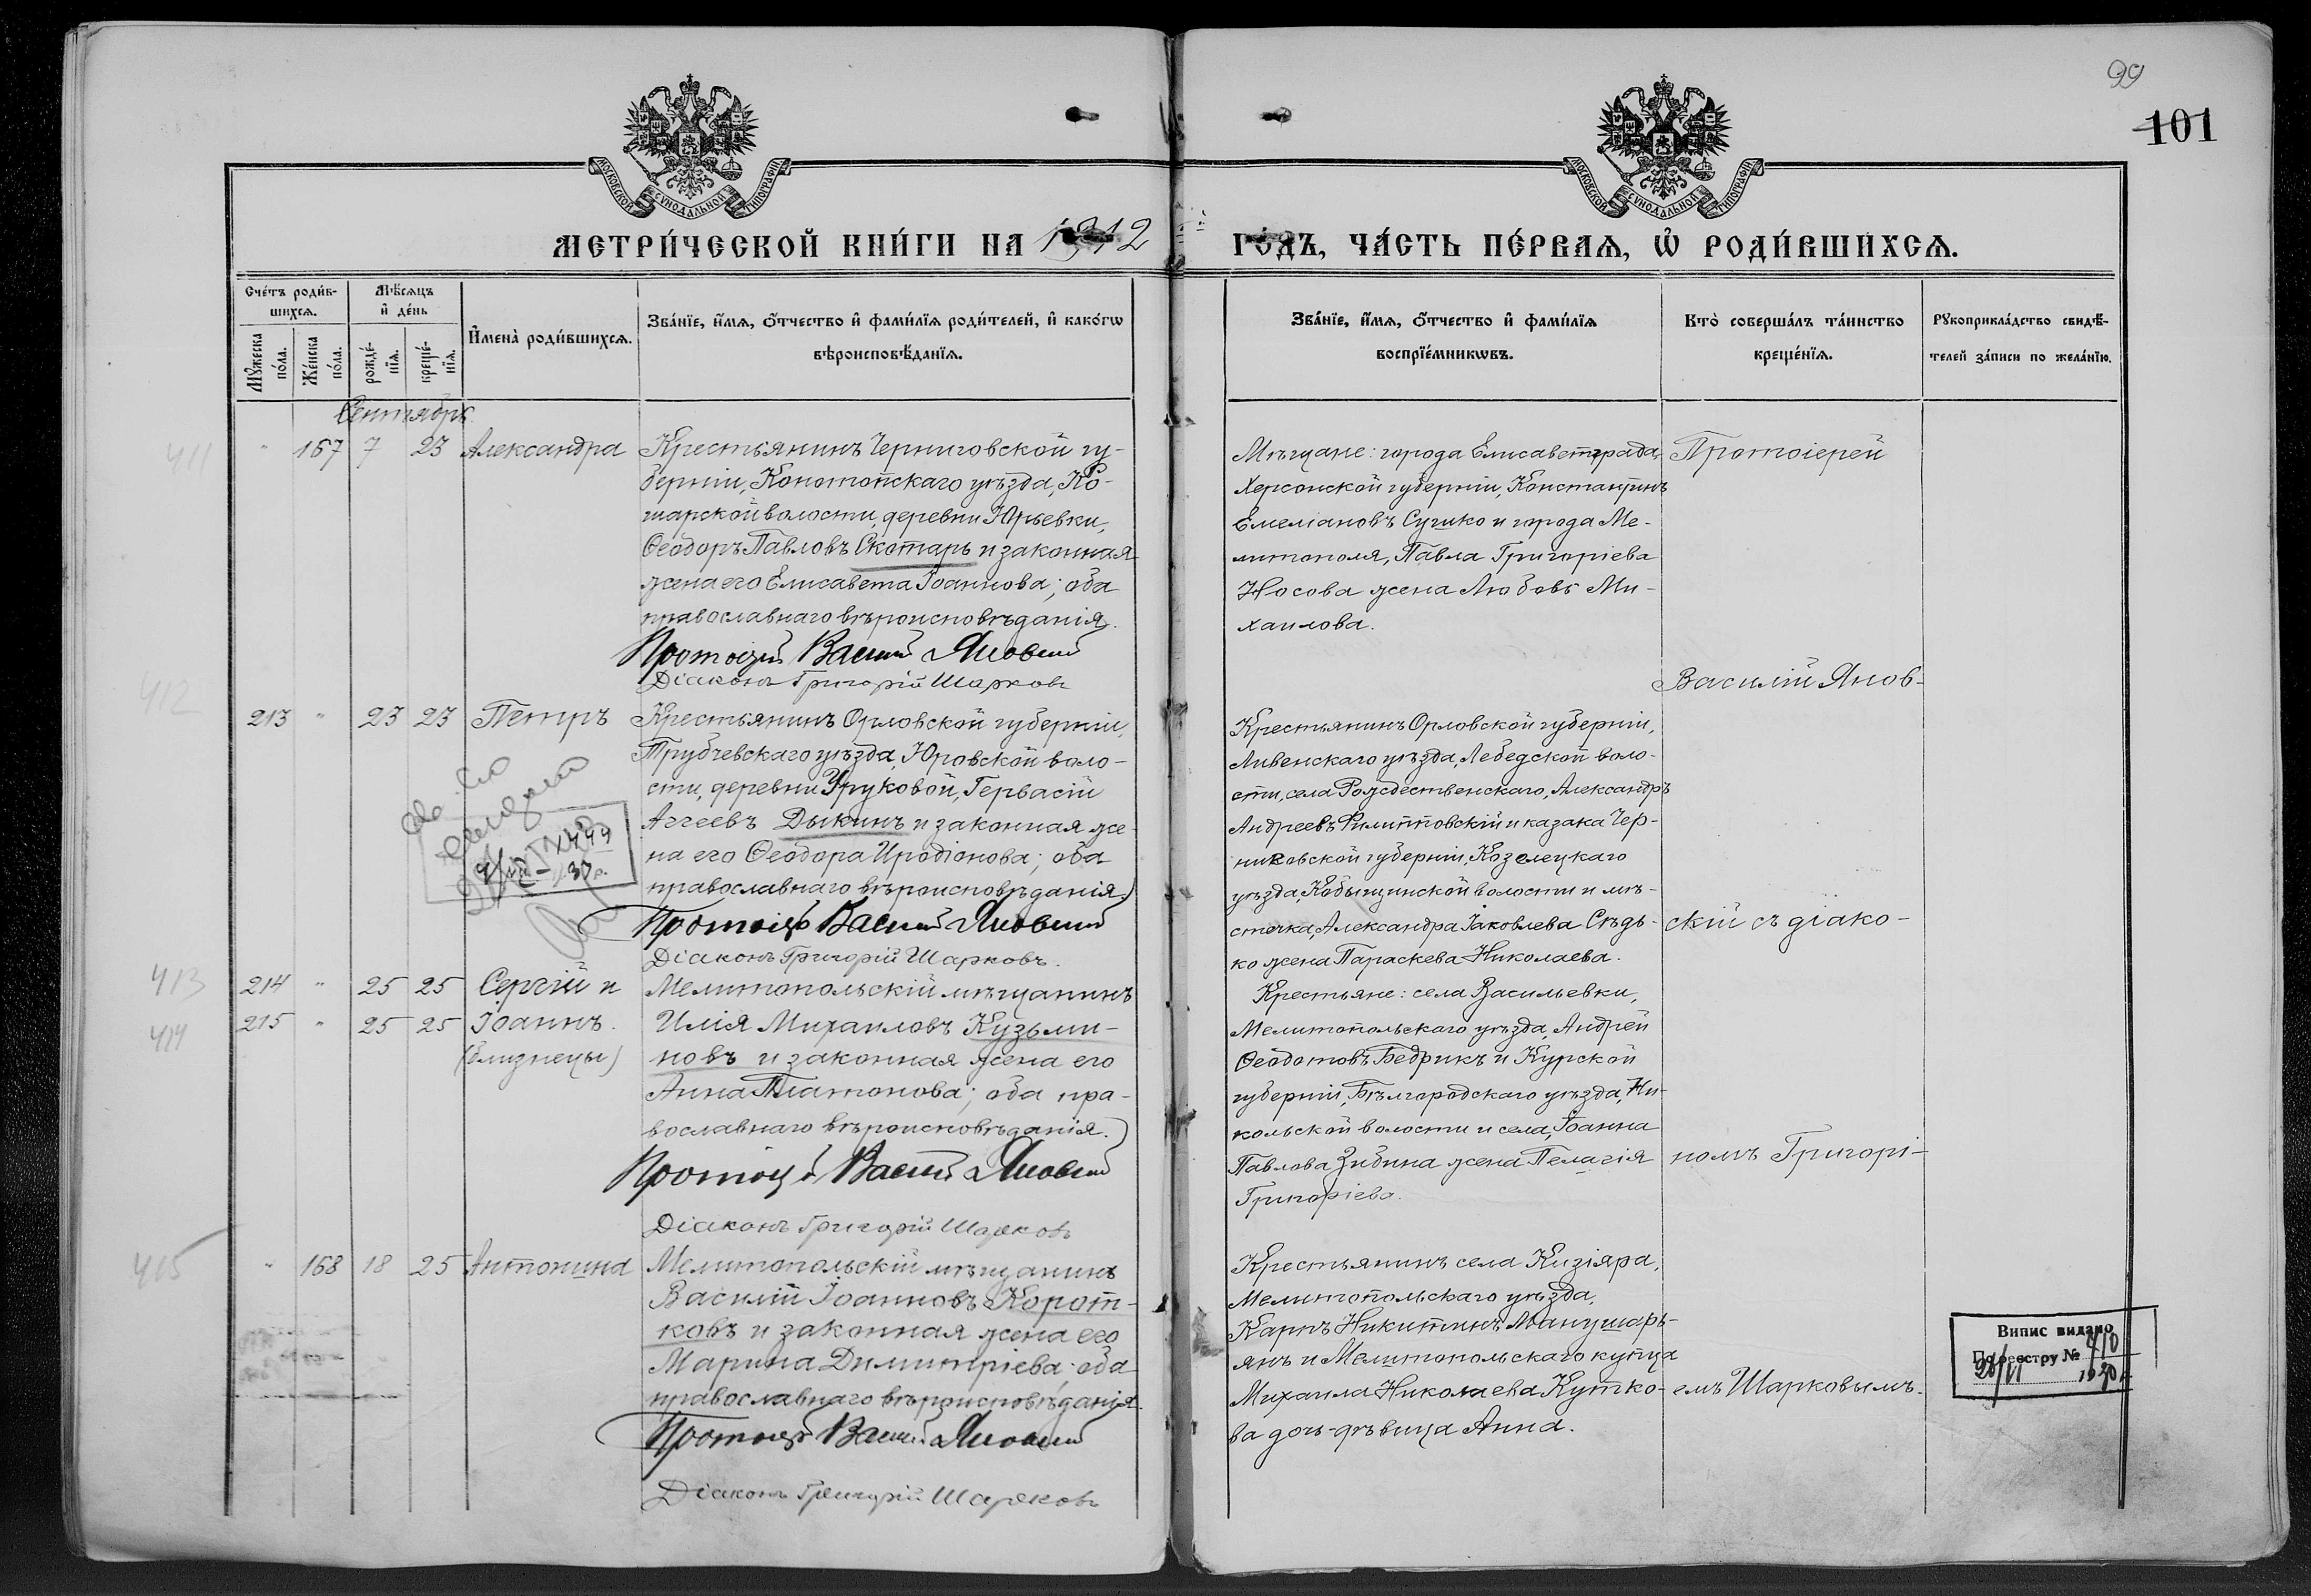 99
101
МОСКОВСКОЙ СѴНОДАЛЬНОЙ ТИПОГРАФІИ
МОСКОВСКОЙ СѴНОДАЛЬНОЙ ТИПОГРАФІИ
МЕТРИ́ЧЕСКОЙ КНИ́ГИ НА 1912 ГО́ДЪ, ЧА́СТЬ ПЕ́РВАѦ, Ѡ҆ РОДИ́ВШИХСѦ.
Сче́тъ роди́в-
шихсѧ.
Мꙋ́жеска по́ла.
Же́нска по́ла.
Мѣ́сѧцъ
и҆ де́нь
рожде́-
нїѧ.
креще́-
нїѧ.
И҆мена̀ роди́вшихсѧ.
Зва́нїе, и҆́мѧ, ѻ҆́тчество и҆ фами́лїѧ роди́телей, и҆ како́гѡ
вѣроисповѣ́данїѧ.
Зва́нїе, и҆́мѧ, ѻ҆́тчество и҆ фами́лїѧ
воспрїе́мникѡвъ.
Кто̀ соверша́лъ та́инство
креще́нїѧ.
Рꙋкоприкла́дство свидѣ́-
телей за́писи по жела́нїю.
Сентябрь
411
" 167 7 23 Александра
Крестьянинъ Черниговской гу-
берніи, Конотопскаго уѣзда, Ко-
шарской волости, деревни Юрьевки,
Ѳеодоръ Павловъ Скотарь и законная
жена его Елисавета Іоаннова; оба
православнаго вѣроисповѣданія.
Протоіерей Василій Яновскій
Діаконъ Григорій Шарковъ
Мѣщане: города Елисаветграда,
Херсонской губерніи, Константинъ
Емеліановъ Сушко и города Ме-
литополя, Павла Григоріева
Носова жена Любовь Ми-
хаилова.
Протоіерей
Василій Янов-
412
213 " 23 23 Петръ
Крестьянинъ Орловской губерніи,
Трубчевскаго уѣзда, Юровской воло-
сти, деревни Уруковой, Гервасій
Аггеевъ Дыкинъ и законная же-
на его Ѳеодора Иродіонова; оба
православнаго вѣроисповѣданія.
Протоіерей Василій Яновскій
Діаконъ Григорій Шарковъ.
Крестьянинъ Орловской губерніи,
Ливенскаго уѣзда, Лебедской воло-
сти, села Рождественскаго, Александръ
Андреевъ Филипповскій и казака Чер-
ниговской губерніи, Козелецкаго
уѣзда, Кобыщинской волости и мѣ-
стечка, Александра Іаковлева Сѣдь-
ко жена Параскева Николаева.
скій съ діако-
413
214 " 25 25 Сергій и
414
215 " 25 25 Іоаннъ.
(близнецы)
Мелитопольскій мѣщанинъ
Илія Михаиловъ Кузьми-
новъ и законная жена его
Анна Платонова; оба пра-
вославнаго вѣроисповѣданія.
Протоіерей Василій Яновскій
Діаконъ Григорій Шарковъ
Крестьяне: села Васильевки,
Мелитопольскаго уѣзда, Андрей
Ѳеодотовъ Бедрикъ и Курской
губерніи, Бѣлгородскаго уѣзда, Ни-
кольской волости и села, Іоанна
Павлова Зибина жена Пелагія
Григоріева.
номъ Григорі-
415
" 168 18 25 Антонина
Мелитопольскій мѣщанинъ
Василій Іоанновъ Корот-
ковъ и законная жена его
Марина Димитріева; оба
православнаго вѣроисповѣданія.
Протоіерей Василій Яновскій
Діаконъ Григорій Шарковъ
Крестьянинъ села Кизіяра,
Мелитопольскаго уѣзда,
Карпъ Никитинъ Манушарь-
янъ и Мелитопольскаго купца
Михаила Николаева Кутко-
ва дочь-дѣвица Анна.
емъ Шарковымъ.
Випис видано
По реестру №